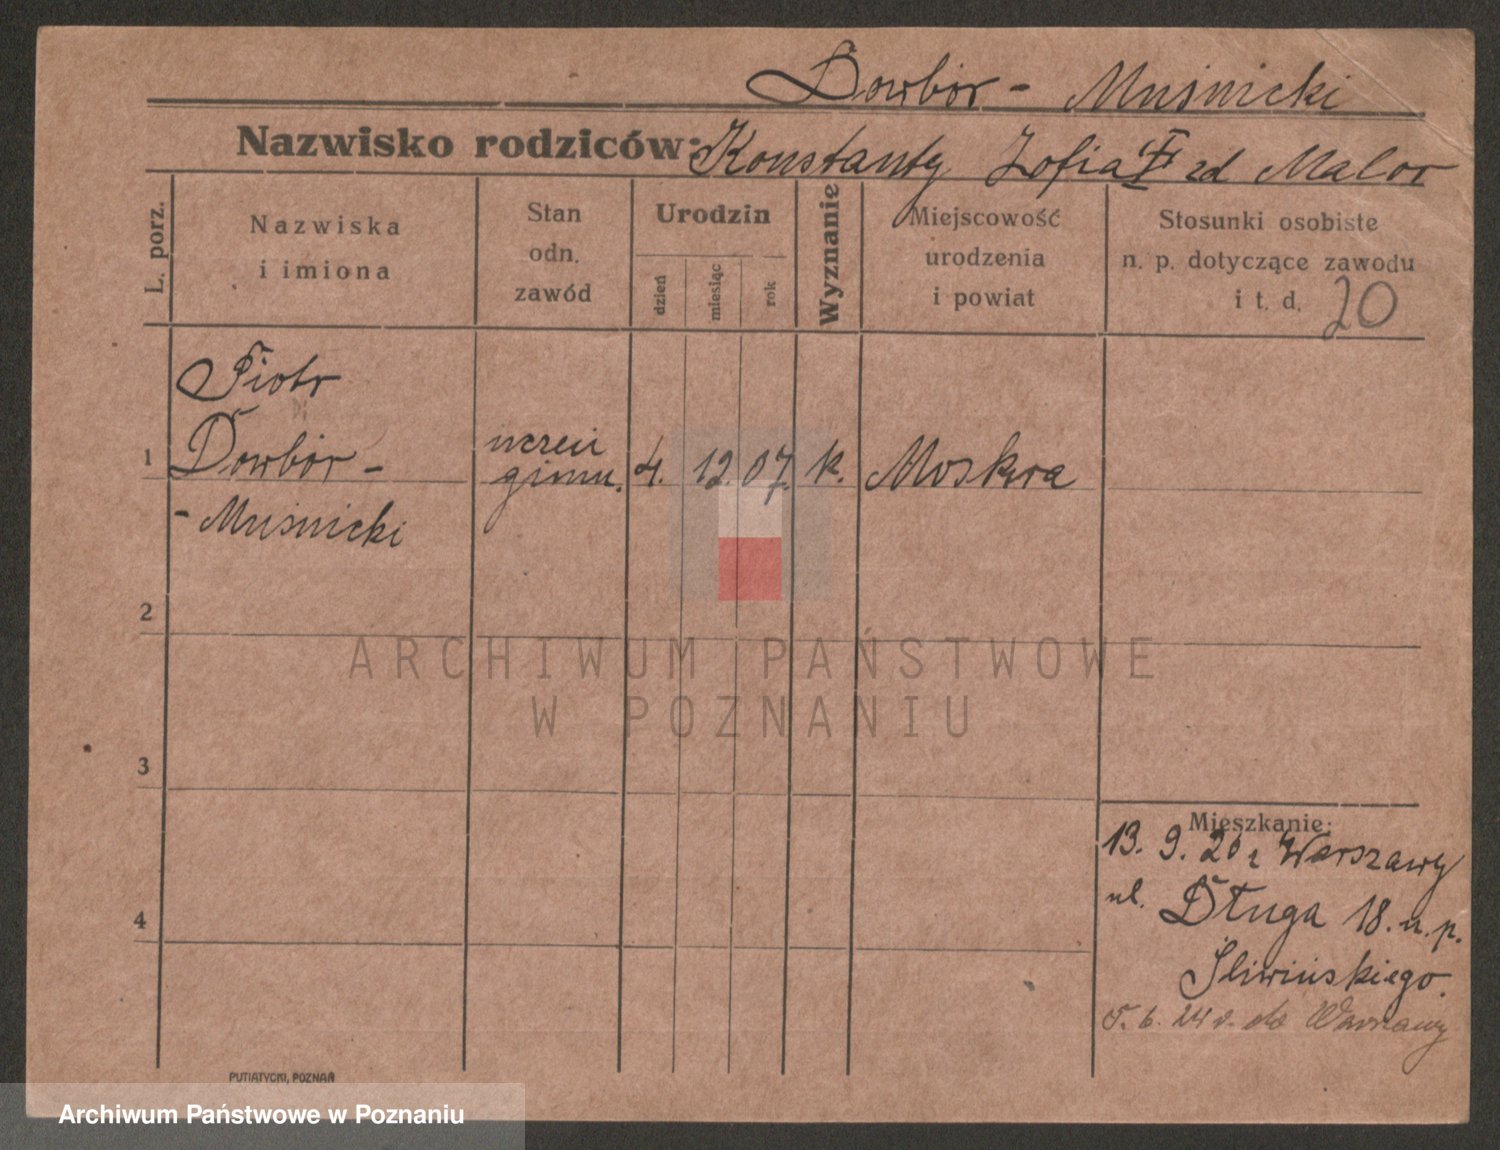 Dowbór - Muśnicki
Nazwisko rodziców: Konstanty Zofia zd Malor
L. porz.
Nazwiska
i imiona
Stan
odn.
zawód
Urodzin
dzień
miesiąc
rok
Wyznanie
Miejscowość
urodzenia
i powiat
Stosunki osobiste
n. p. dotyczące zawodu
i t. d.
20
1
Piotr
Dowbór -
- Muśnicki
uczeń
gimn.
4. 12. 07. k. Moskwa
2
3
4
Mieszkanie:
13. 9. 20 z Warszawy
ul. Długa 18. u. p.
Śliwińskiego.
5. 6. 24 r. do Warszawy
PUTIATYCKI, POZNAŃ
ARCHIWUM PAŃSTWOWE
W POZNANIU
Archiwum Państwowe w Poznaniu